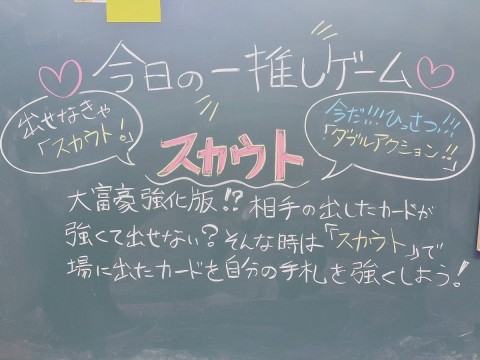 今日の一推しゲーム
出せなきゃ
「スカウト!」
今だ!!!ひっさつ!!!
「ダブルアクション!!」
スカウト
大富豪強化版!? 相手の出したカードが
強くて出せない?そんな時は「スカウト」で
場に出たカードを自分の手札を強くしよう!